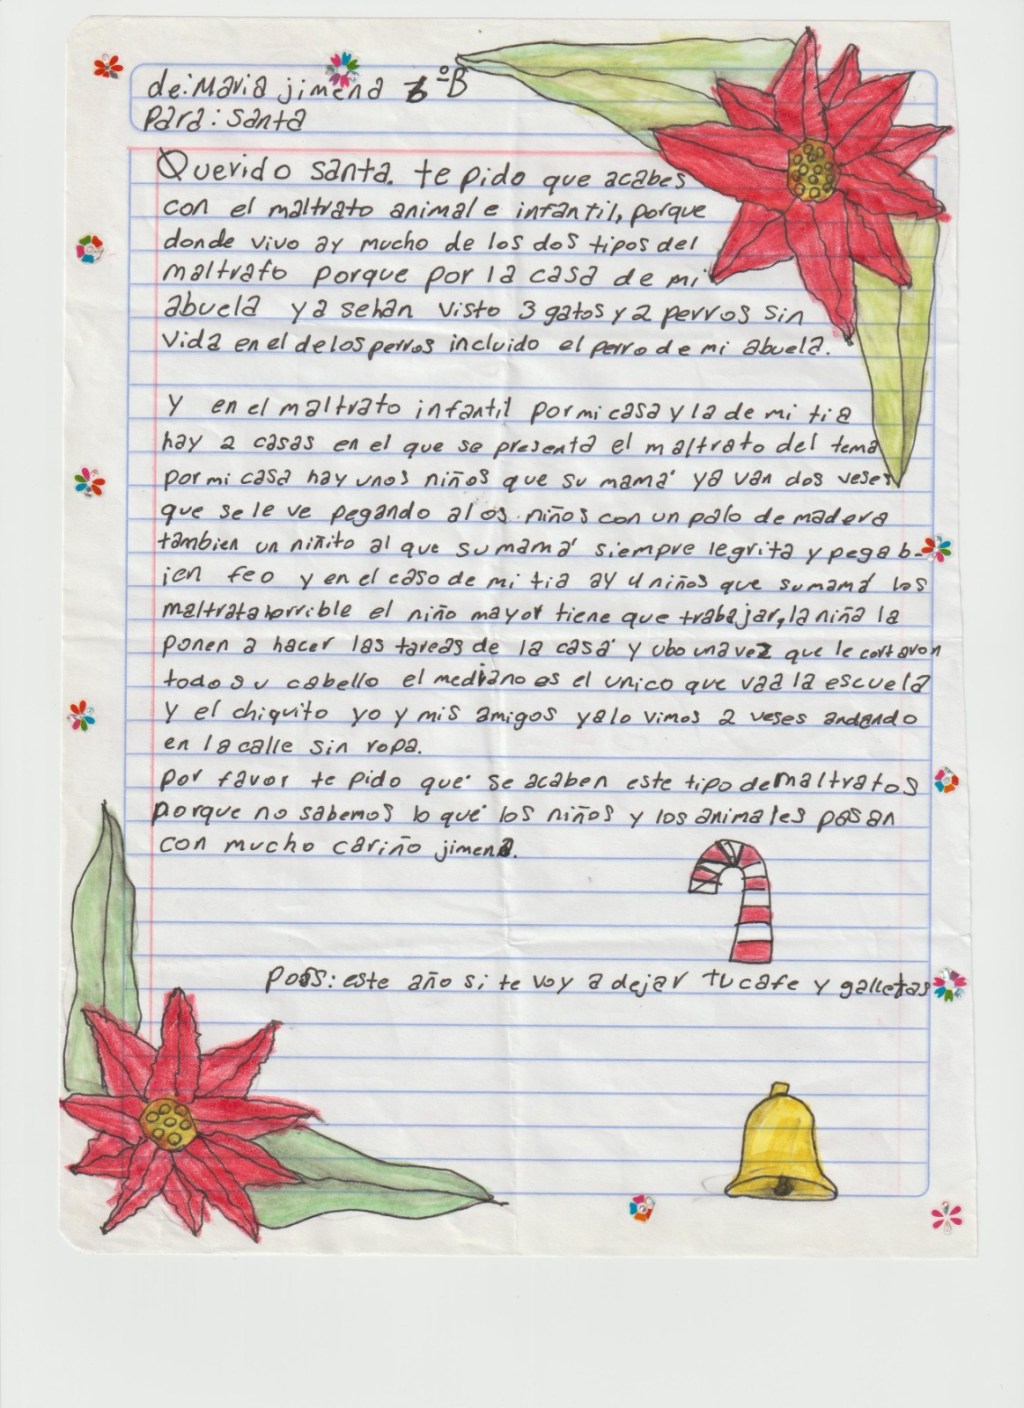 de: Maria jimena 6ºB
Para: Santa
Querido santa. te pido que acabes
con el maltrato animal e infantil, porque
donde vivo ay mucho de los dos tipos del
maltrato porque por la casa de mi
abuela ya sehan visto 3 gatos y 2 perros sin
vida en el delos perros incluido el perro de mi abuela.
Y en el maltrato infantil por mi casa y la de mi tia
hay 2 casas en el que se presenta el maltrato del tema
por mi casa hay unos niños que su mamá ya van dos veses
que se le ve pegando a los niños con un palo de madera
tambien un niñito al que su mamá siempre legrita y pega b-
ien feo y en el caso de mi tia ay 4 niños que su mamá los
maltrata horrible el niño mayor tiene que trabajar, la niña la
ponen a hacer las tareas de la casa y ubo una vez que le cortaron
todo su cabello el mediano es el unico que vaa la escuela
y el chiquito yo y mis amigos yalo vimos 2 veses andando
en la calle sin ropa.
por favor te pido que se acaben este tipo de maltratos
porque no sabemos lo que los niños y los animales pasan
con mucho cariño jimena.
Poss: este año si te voy a dejar tu cafe y galletas